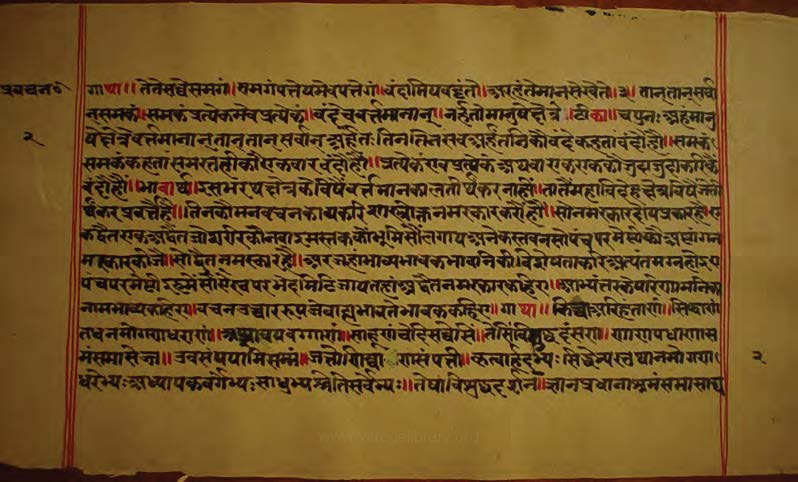 प्रवचन०
२
गाथा॥ ते ते सव्वे समगं॥ समगं पत्तेयमेव पत्तेगं॥ वंदामि य वट्टंते॥ अरहंते माणुसे खेत्ते॥३॥ तान् तान् सर्वा
न् समकं समकं प्रत्येकमेव प्रत्येकं॥ वंदे च वर्त्तमानान्॥ नर्हतो मानुषे क्षेत्रे॥ टीका॥ च पुनः अहं मानु
षे क्षेत्रे वर्त्तमानान् तान् तान् सर्वान् अर्हतः तिन तिन सब अर्हंतनि कौ वंदे कहता वंदौं हौं॥ समकं
समकं कहता समस्त हौं की एकबार वंदौं हौं॥ प्रत्येकं एव प्रत्येकं अथवा एक एक कौं जुदा जुदा करि कैं
वंदौं हौं॥ भावार्थ॥ इस भरथ क्षेत्र के विषैं वर्त्तमान काल तीर्थंकर नाहीं॥ तातैं महाविदेह क्षेत्र विषैं जे ती
र्थंकर प्रवर्त्तै हैं॥ तिन कौ मन वचन काय करि शास्त्रोक्त नमस्कार करौं हौं॥ सो नमस्कार दोय प्रकार है॥ ए
क द्वैत एक अद्वैत जो शरीर कौ नवाइ मस्तक कौं भूमि सौं लगाय अनेक स्तवन सो पंच परमेष्ठी कौ अष्टांग न
मस्कार कीजै॥ सो द्वैत नमस्कार है॥ अर जहां भाव्य भावक भावनि की विशेषता करि अत्यंत मग्न होइ ए
पंच परमेष्ठी इह मैं सो ऐ स्वपर भेद मिटि जाय तहां अद्वैत नमस्कार कहिए॥ आभ्यंतर के परिणामनि का
नाम भाव्य कहिए॥ वचन उच्चार रूप जे बाह्य भाव ते भावक कहिए॥ गाथा॥ किच्चा अरिहंताणं॥ सिद्धाणं
तध नमो गणधराणं॥ अज्झावय वग्गाणं॥ साहूणं चेदि सव्वेसिं॥ तेसिं विसुद्ध दंसण॥ णाणपधाणास
मं समासेज्ज॥ उवसंपयामि सम्मं॥ जत्तो णिव्वाणसंपत्ती॥ कृत्वार्हद्भ्यः सिद्धेभ्यस्तथा नमो गण
धरेभ्यः अध्यापक वर्गेभ्यः साधुभ्यश्चेति सर्वेभ्यः॥ तेषां विशुद्ध दर्शन॥ ज्ञान प्रधानाश्रमं समासाद्य
२